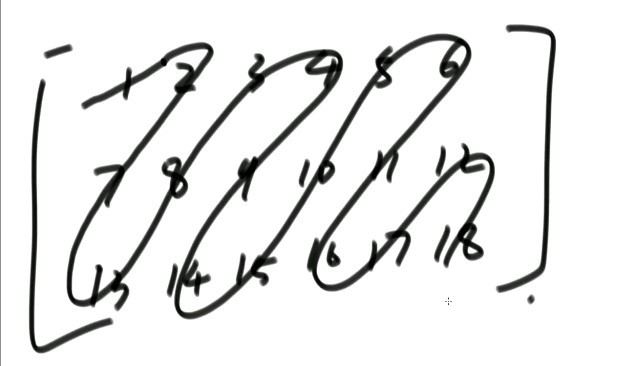 1 2 3 4 5 6
7 8 9 10 11 12
13 14 15 16 17 18